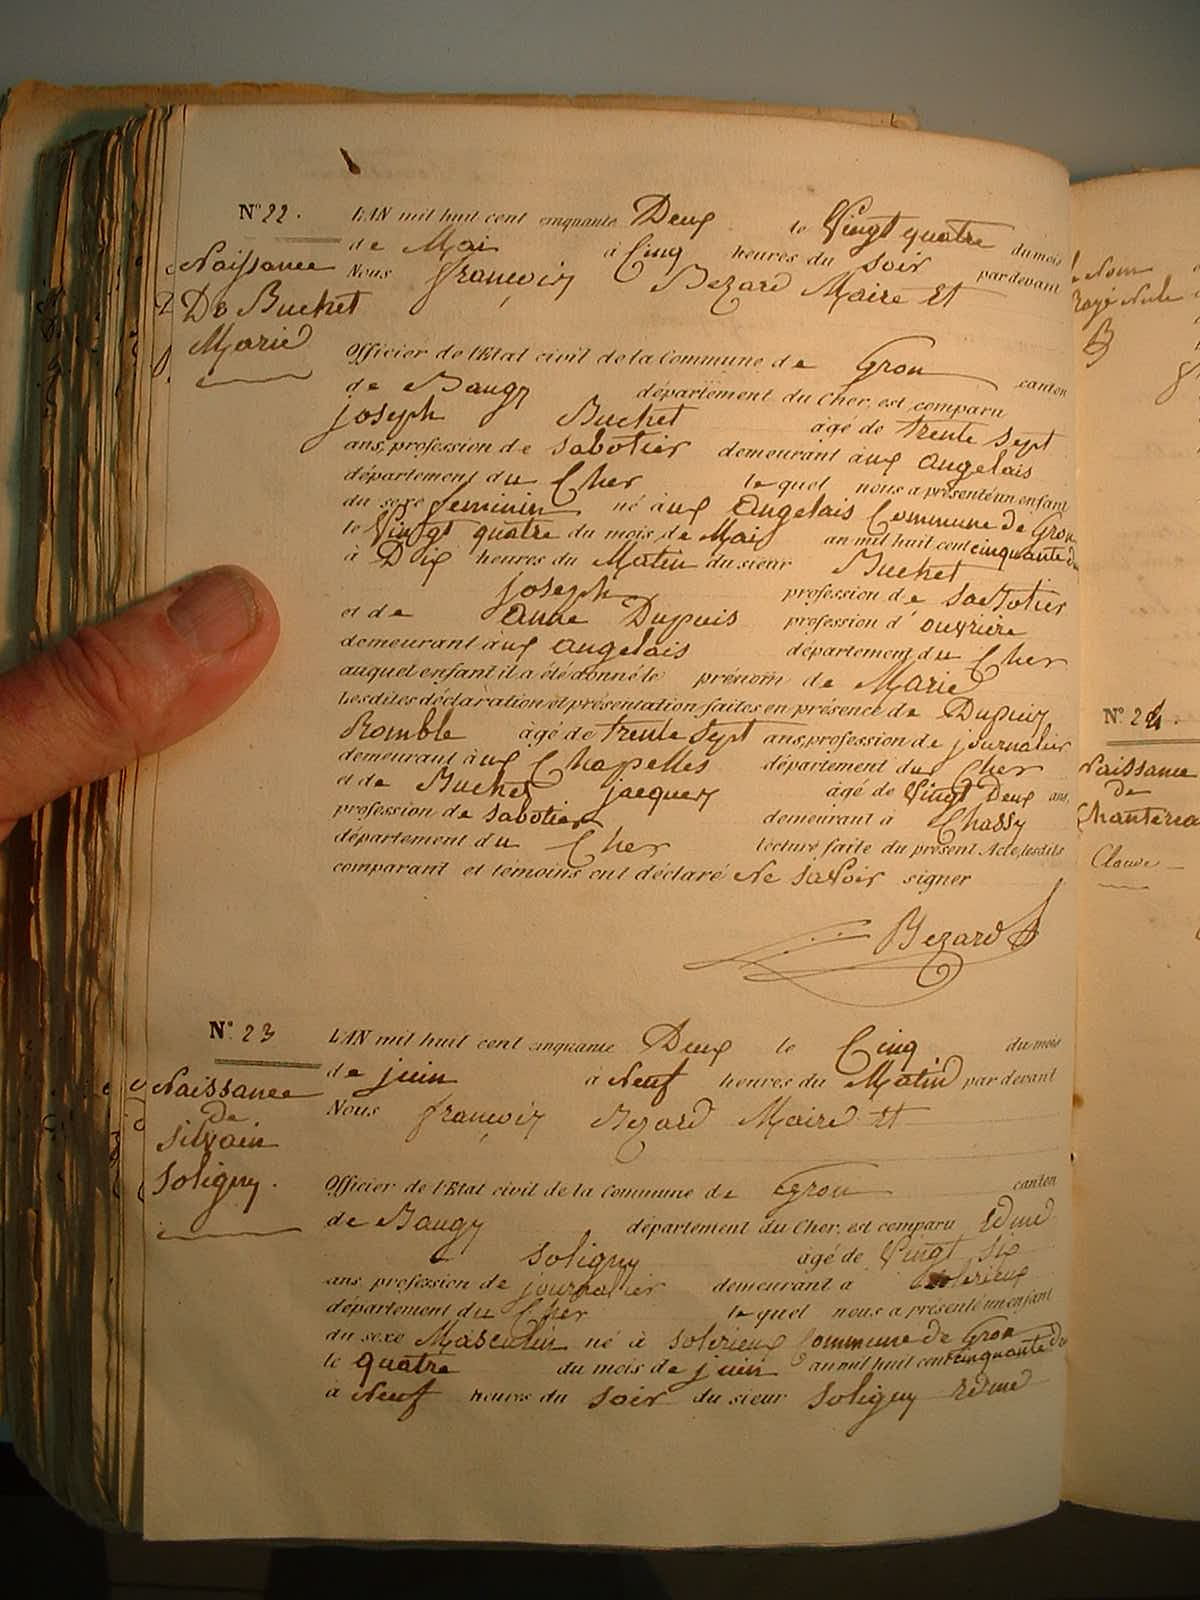 N° 22.
Naissance
De Buchet
Marie
L'AN mil huit cent cinquante Deux le Vingt quatre du mois
de Mai à Cinq heures du soir par devant
Nous françois Bezard Maire Et
Officier de l'Etat civil de la Commune de Gron canton
de Baugy département du Cher, est comparu
joseph Buchet âgé de trente sept
ans, profession de sabotier demeurant aux angelais
département du Cher lequel nous a présenté un enfant
du sexe feminin né aux Angelais Commune de Gron
le Vingt quatre du mois de Mai an mil huit cent cinquante
à Dix heures du Matin du sieur Buchet
joseph profession de sabotier
et de Anne Dupuis profession d'ouvrière
demeurant aux angelais département du Cher
auquel enfant il a été donné le prénom de Marie
Lesdites déclaration et présentation faites en présence de Dupuis
Romble âgé de trente sept ans, profession de journalier
demeurant aux Chapelles département du Cher
et de Buchet jacques âgé de Vingt Deux ans,
profession de sabotier demeurant à Chassy
département du Cher lecture faite du présent Acte, lesdits
comparant et témoins ont déclaré Ne savoir signer
Bezard
N° 23
Naissance
de
silvain
soligny.
L'AN mil huit cent cinquante Deux le Cinq du mois
de juin à Neuf heures du Matin par devant
Nous françois Bezard Maire Et
Officier de l'Etat civil de la Commune de Gron canton
de Baugy département du Cher, est comparu Edme
soligny âgé de Vingt six
ans, profession de journalier demeurant à solerieux
département du Cher lequel nous a présenté un enfant
du sexe Masculin né à solerieux Commune de Gron
le quatre du mois de juin an mil huit cent cinquante
à Neuf heures du soir du sieur soligny Edme
Nom
Rayé Nul
B
N° 24.
Naissance
de
Claude